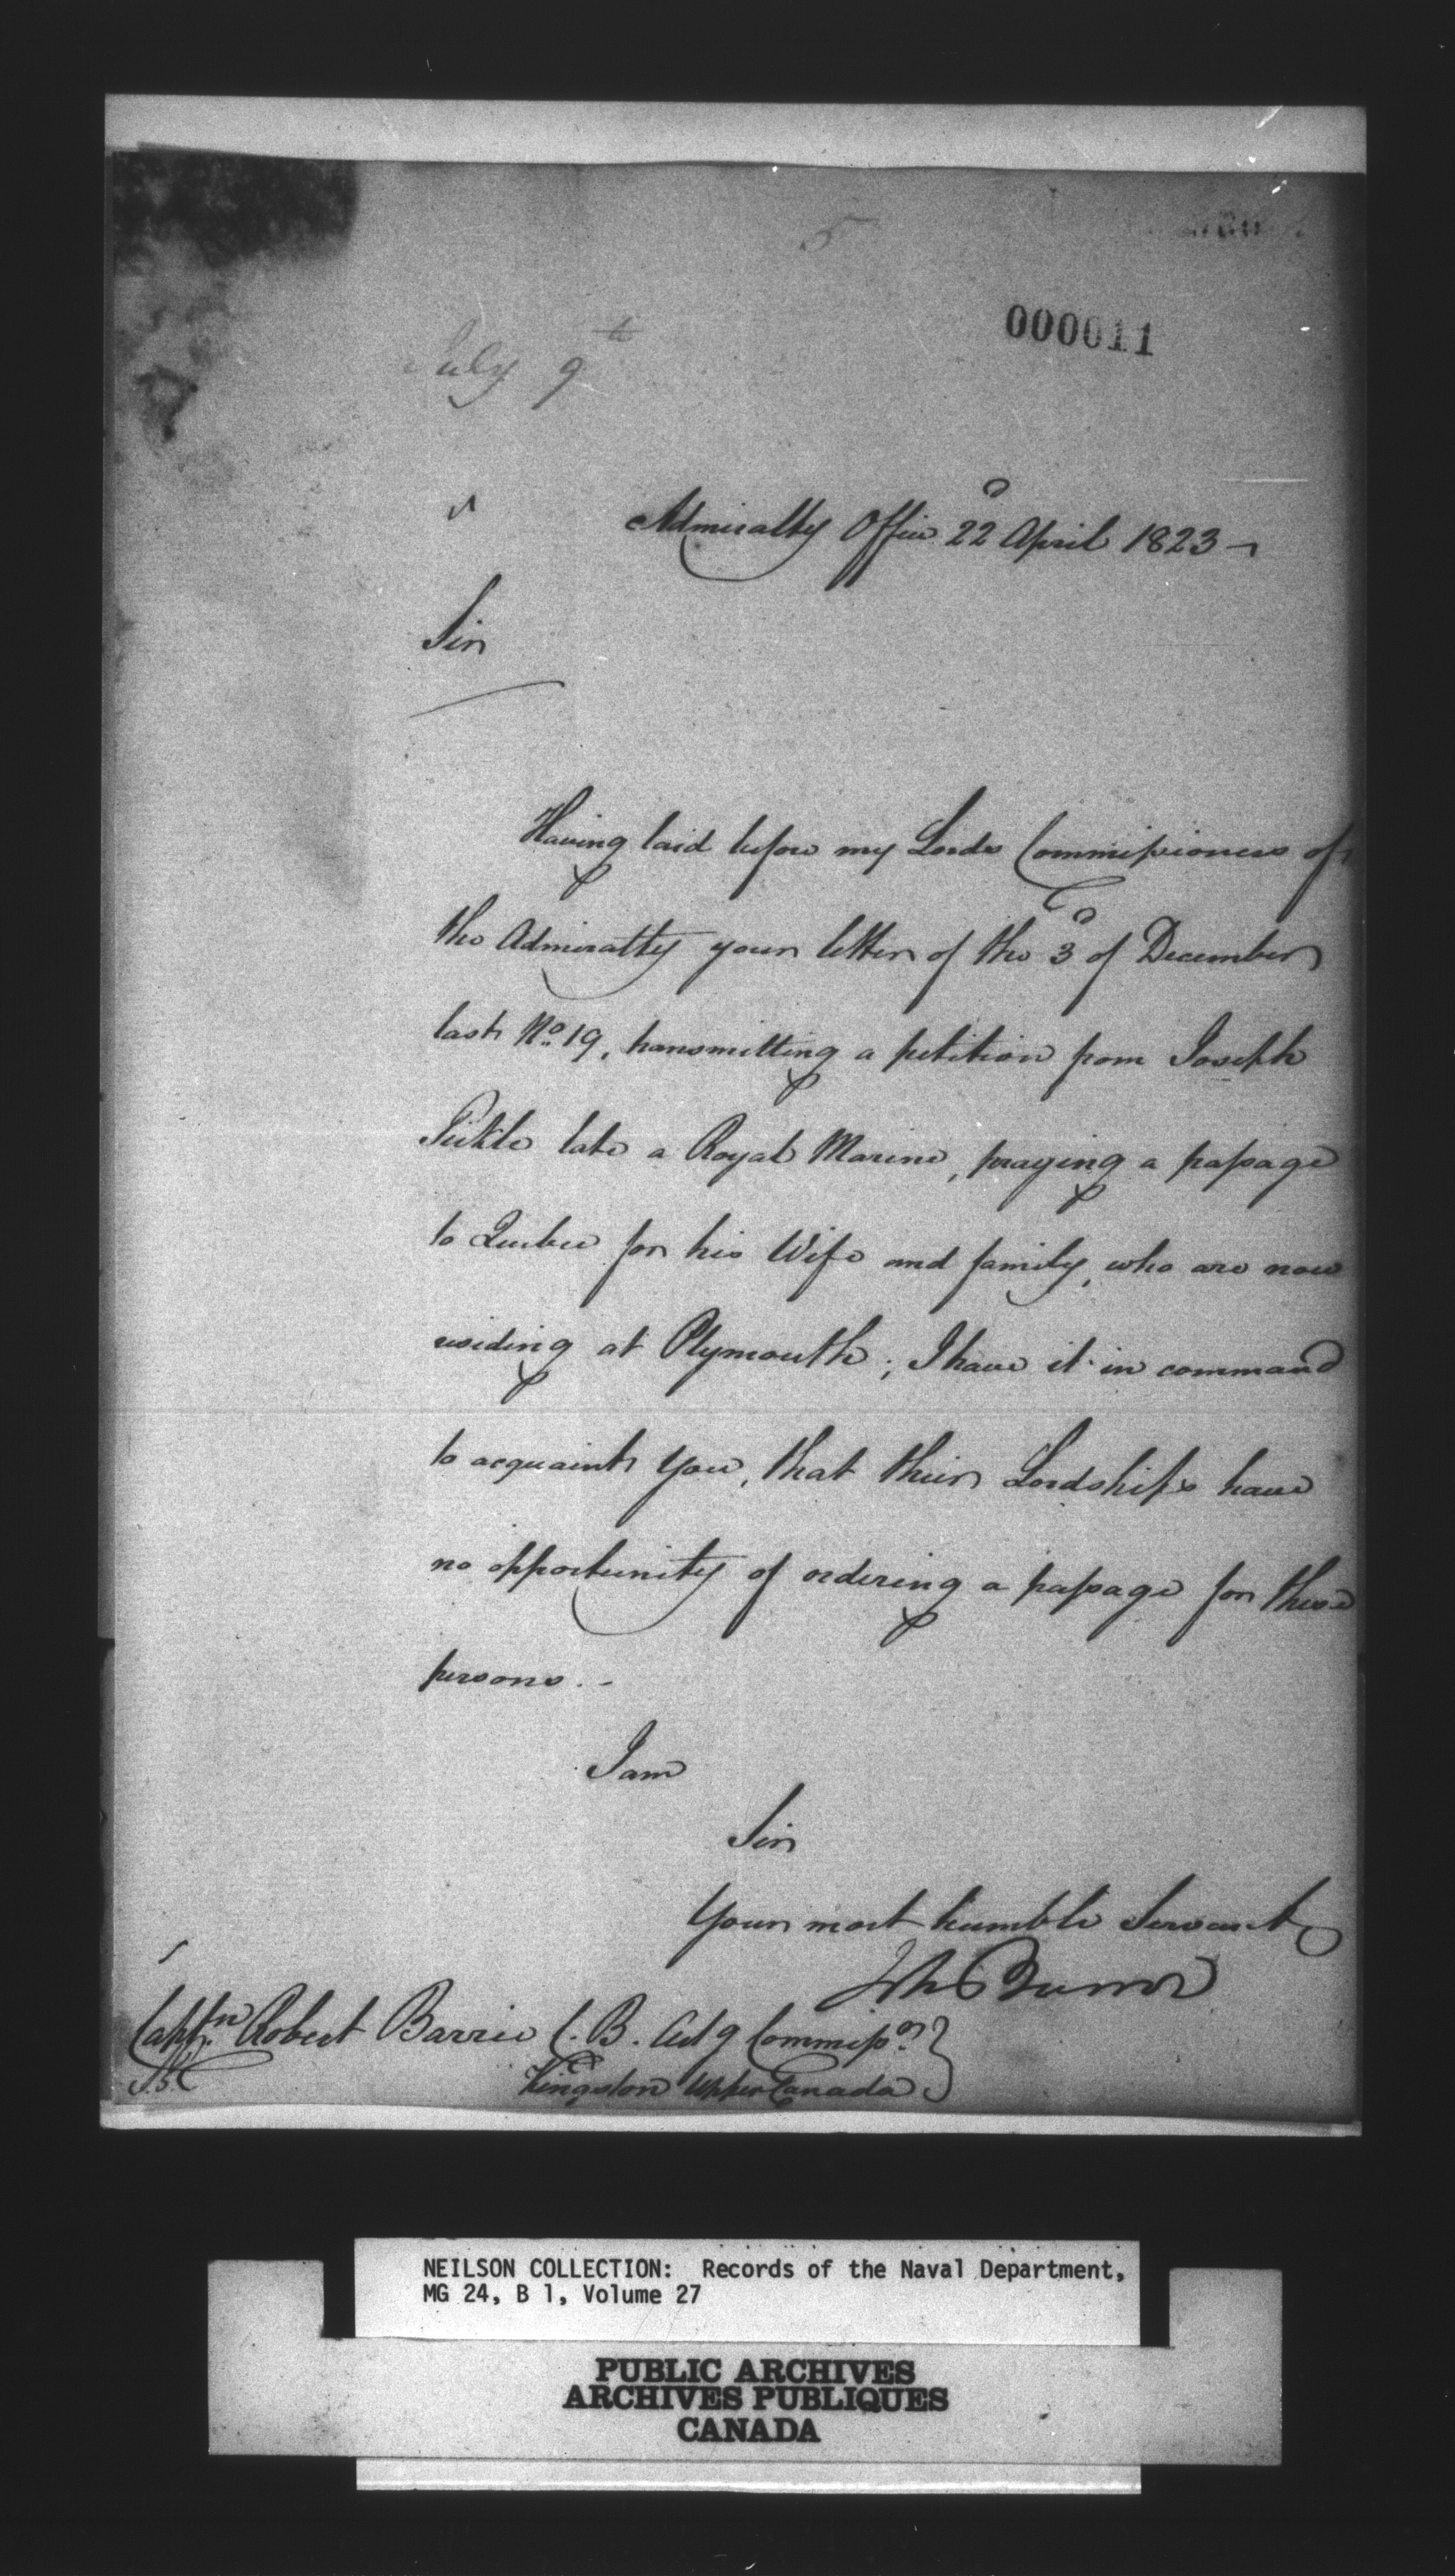 5
000011
July 9th
Admiralty Office 22d April 1823
Sir
Having laid before my Lords Commissioners of
the Admiralty your letter of the 3d of December
last No. 19, transmitting a petition from Joseph
Pickle late a Royal Marine, praying a passage
to Quebec for his Wife and family, who are now
residing at Plymouth; I have it in command
to acquaint you, that their Lordships have
no opportunity of ordering a passage for these
persons. -
I am
Sir
Your most humble Servant
Jno Barrow
Captn Robert Barrie C.B. Actg Commissr
Kingston Upper Canada
NEILSON COLLECTION: Records of the Naval Department,
MG 24, B 1, Volume 27
PUBLIC ARCHIVES
ARCHIVES PUBLIQUES
CANADA